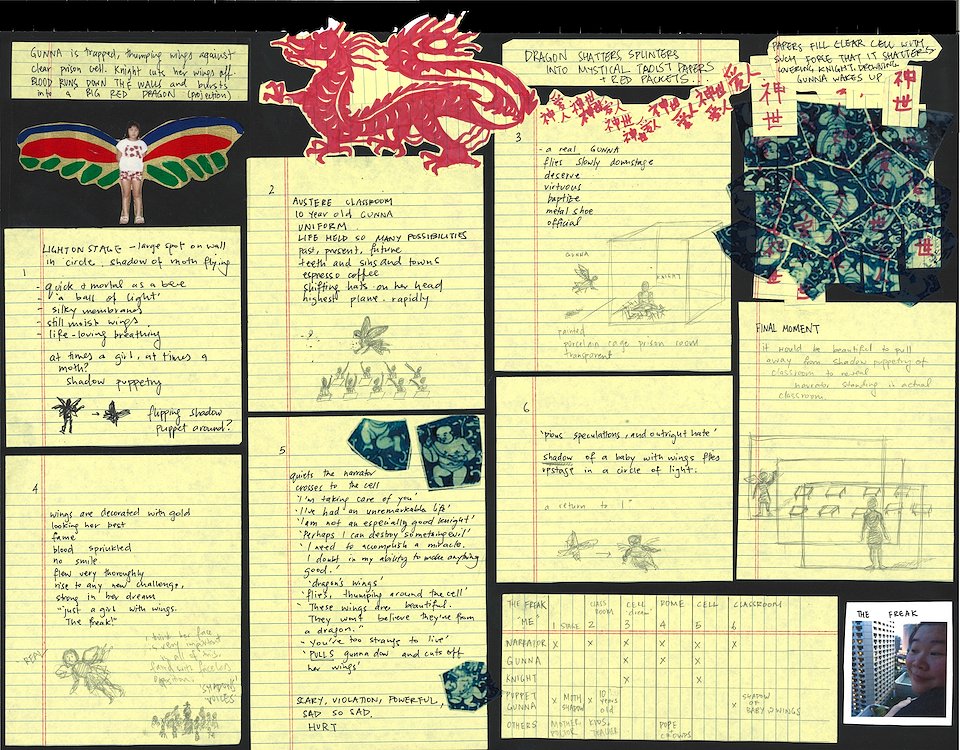 GUNNA is trapped, thumping wings against
clear prison cell. Knight cuts her wings off.
BLOOD RUNS DOWN THE WALLS and bursts
into a BIG RED DRAGON (projection)
DRAGON SHATTERS SPLINTERS
INTO MYSTICAL TAOIST PAPERS
+ RED PACKETS!
PAPERS FILL CLEAR CELL WITH
SUCH FORCE THAT IT SHATTERS
COVERING KNIGHT, DROWNING
GUNNA WAKES UP.
神
世
神
世
世
1
LIGHT ON STAGE - large spot on wall
in circle. shadow of moth flying
- quick & mortal as a bee
- 'a ball of light'
- silky membranes
- still moist wings
- life-loving breathing
at times a girl, at times a
moth?
shadow puppetry
flipping shadow
puppet around?
2
AUSTERE CLASSROOM
10 year old GUNNA
UNIFORM
LIFE HELD SO MANY POSSIBILITIES
past, present, future
teeth and sins and towns
espresso coffee
shifting hats on her head
highest plane. rapidly
3
- a real GUNNA
flies slowly downstage
deserve
virtuous
baptize
metal shoe
official
GUNNA
KNIGHT
painted
porcelain cage prison room
transparent
4
wings are decorated with gold
looking her best
fame
blood sprinkled
no smile
flew very thoroughly
rise to any new challenge,
strong in her dream
"just a girl with wings.
The freak!"
REAL
SHADOW
VOICES
5
quiets the narrator
crosses to the cell
'I'm taking care of you'
'I've had an unremarkable life'
'I am not an especially good knight'
'Perhaps I can destroy something evil'
'I need to accomplish a miracle.
I doubt in my ability to make anything
good.'
'dragon's wings'
'flies, thumping around the cell'
'These wings are beautiful.
They won't believe they're from
a dragon.'
'You're too strange to live'
'PULLS gunna down and cuts off
her wings'
SCARY, VIOLATION, POWERFUL,
SAD SO SAD.
HURT
6
'pious speculations, and outright hate'
shadow of a baby with wings flies
upstage in a circle of light.
a return to 1
FINAL MOMENT
it would be beautiful to pull
away from shadow puppetry of
classroom to reveal
narrator standing in actual
classroom.
THE FREAK
"ME"
1 STAGE
CLASS ROOM 2
CELL 'dream' 3
ROME 4
CELL 5
CLASSROOM 6
NARRATOR x x x x x x
GUNNA x x x
KNIGHT x x
PUPPET GUNNA x MOTH SHADOW x 10 years old x SHADOW OF BABY W WINGS
OTHERS MOTHER KIDS, POPE CROWDS
THE FREAK